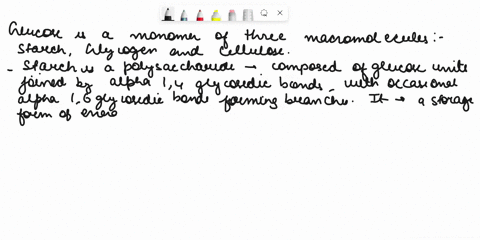 Glucose is a monomer of three macromolecules:-
Starch, Glycogen and Cellulose.
- Starch is a polysaccharide → composed of glucose units
joined by alpha 1,4 glycosidic bonds, with occasional
alpha 1,6 glycosidic bonds forming branches. It → a storage
form of ener